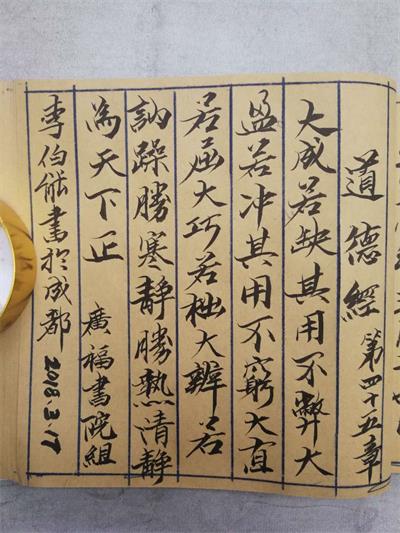 道德經第四十五章
大成若缺其用不弊大
盈若冲其用不窮大直
若屈大巧若拙大辨若
訥躁勝寒靜勝熱清靜
為天下正 廣福書院組
李伯能書於成都 2018.3.17